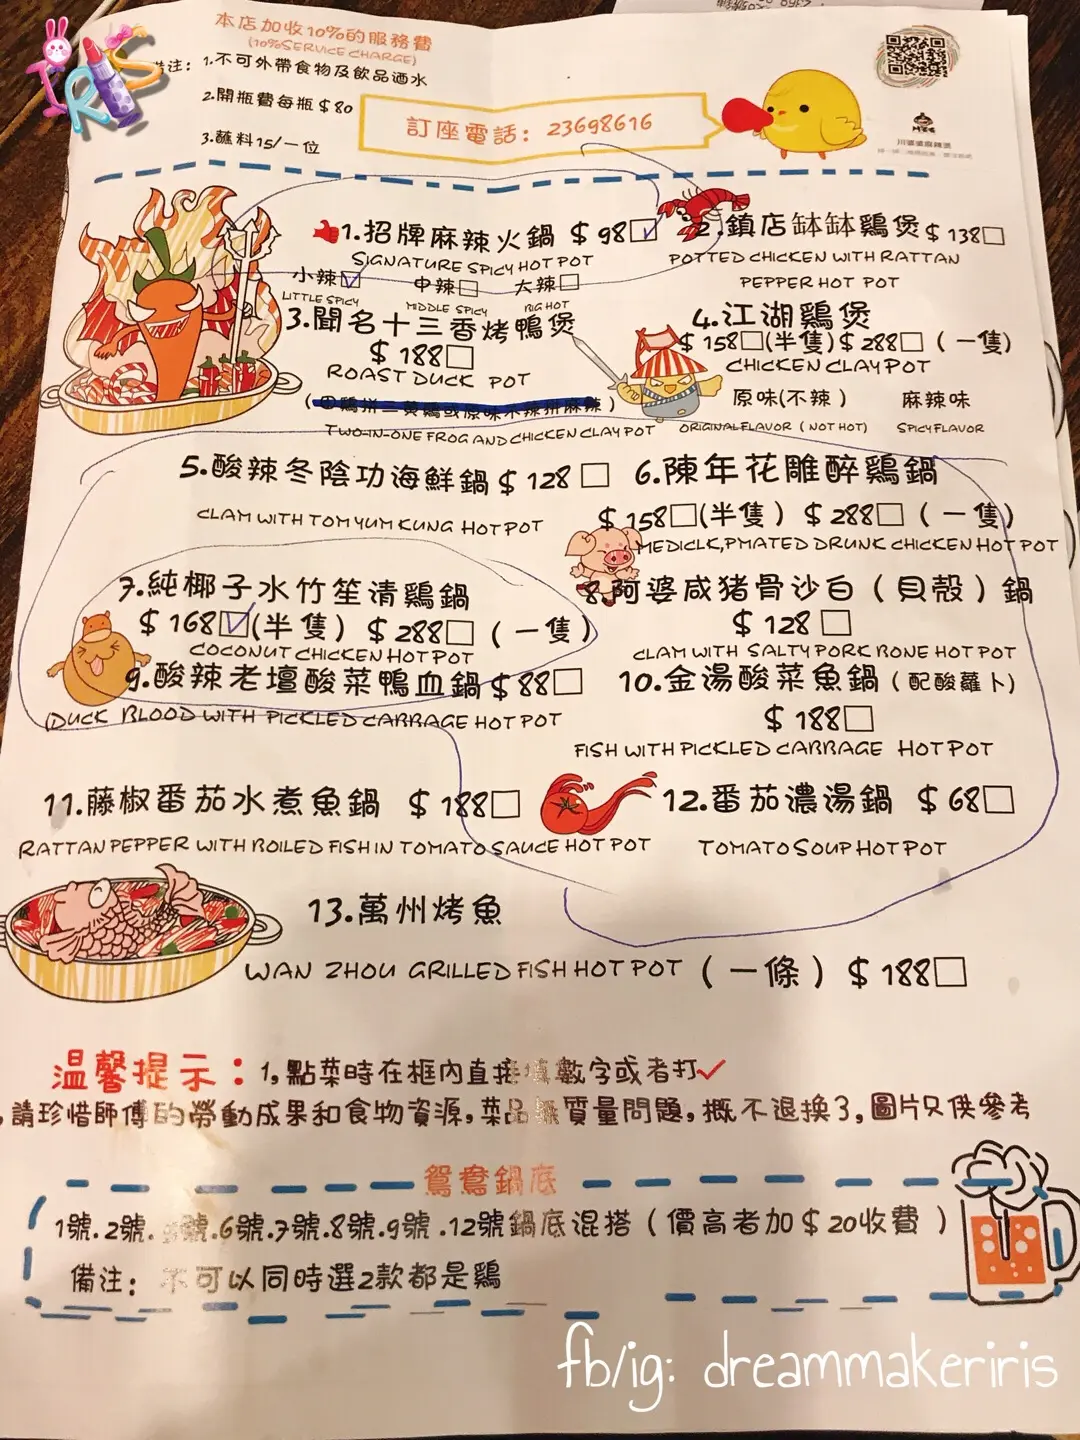 IRIS
本店加收10%的服務費
(10%SERVICE CHARGE)
備注：1.不可外帶食物及飲品酒水
2.開瓶費每瓶$80
3.蘸料15/一位
訂座電話：23698616
川婆婆麻辣煲
1.招牌麻辣火鍋 $98
SIGNATURE SPICY HOT POT
小辣 中辣 大辣
LITTLE SPICY MIDDLE SPICY BIG HOT
2.鎮店缽缽鷄煲$138
POTTED CHICKEN WITH RATTAN
PEPPER HOT POT
3.聞名十三香烤鴨煲
$188
ROAST DUCK POT
TWO-IN-ONE FROG AND CHICKEN CLAY POT
4.江湖鷄煲
$158(半隻)$288（一隻)
CHICKEN CLAY POT
原味(不辣） 麻辣味
ORIGINAL FLAVOR (NOT HOT) SPICY FLAVOR
5.酸辣冬陰功海鮮鍋$128
CLAM WITH TOM YUM KUNG HOT POT
6.陳年花雕醉鷄鍋
$158(半隻）$288（一隻）
MEDICLK,PMATED DRUNK CHICKEN HOT POT
7.純椰子水竹笙清鷄鍋
$168(半隻）$288（一隻）
COCONUT CHICKEN HOT POT
8.阿婆咸猪骨沙白（貝殼）鍋
$128
CLAM WITH SALTY PORK BONE HOT POT
9.酸辣老壇酸菜鴨血鍋$88
DUCK BLOOD WITH PICKLED CABBAGE HOT POT
10.金湯酸菜魚鍋（配酸蘿卜）
$188
FISH WITH PICKLED CABBAGE HOT POT
11.藤椒番茄水煮魚鍋 $188
RATTAN PEPPER WITH BOILED FISH IN TOMATO SAUCE HOT POT
12.番茄濃湯鍋 $68
TOMATO SOUP HOT POT
13.萬州烤魚
WAN ZHOU GRILLED FISH HOT POT（一條）$188
温馨提示：1,點菜時在框內直接填數字或者打✓
,請珍惜師傅的勞動成果和食物資源,菜品無質量問題,概不退換3,圖片只供參考
鴛鴦鍋底
1號.2號. 號.6號.7號.8號.9號.12號鍋底混搭（價高者加$20收費）
備注：不可以同時選2款都是鷄
fb/ig: dreammakeriris